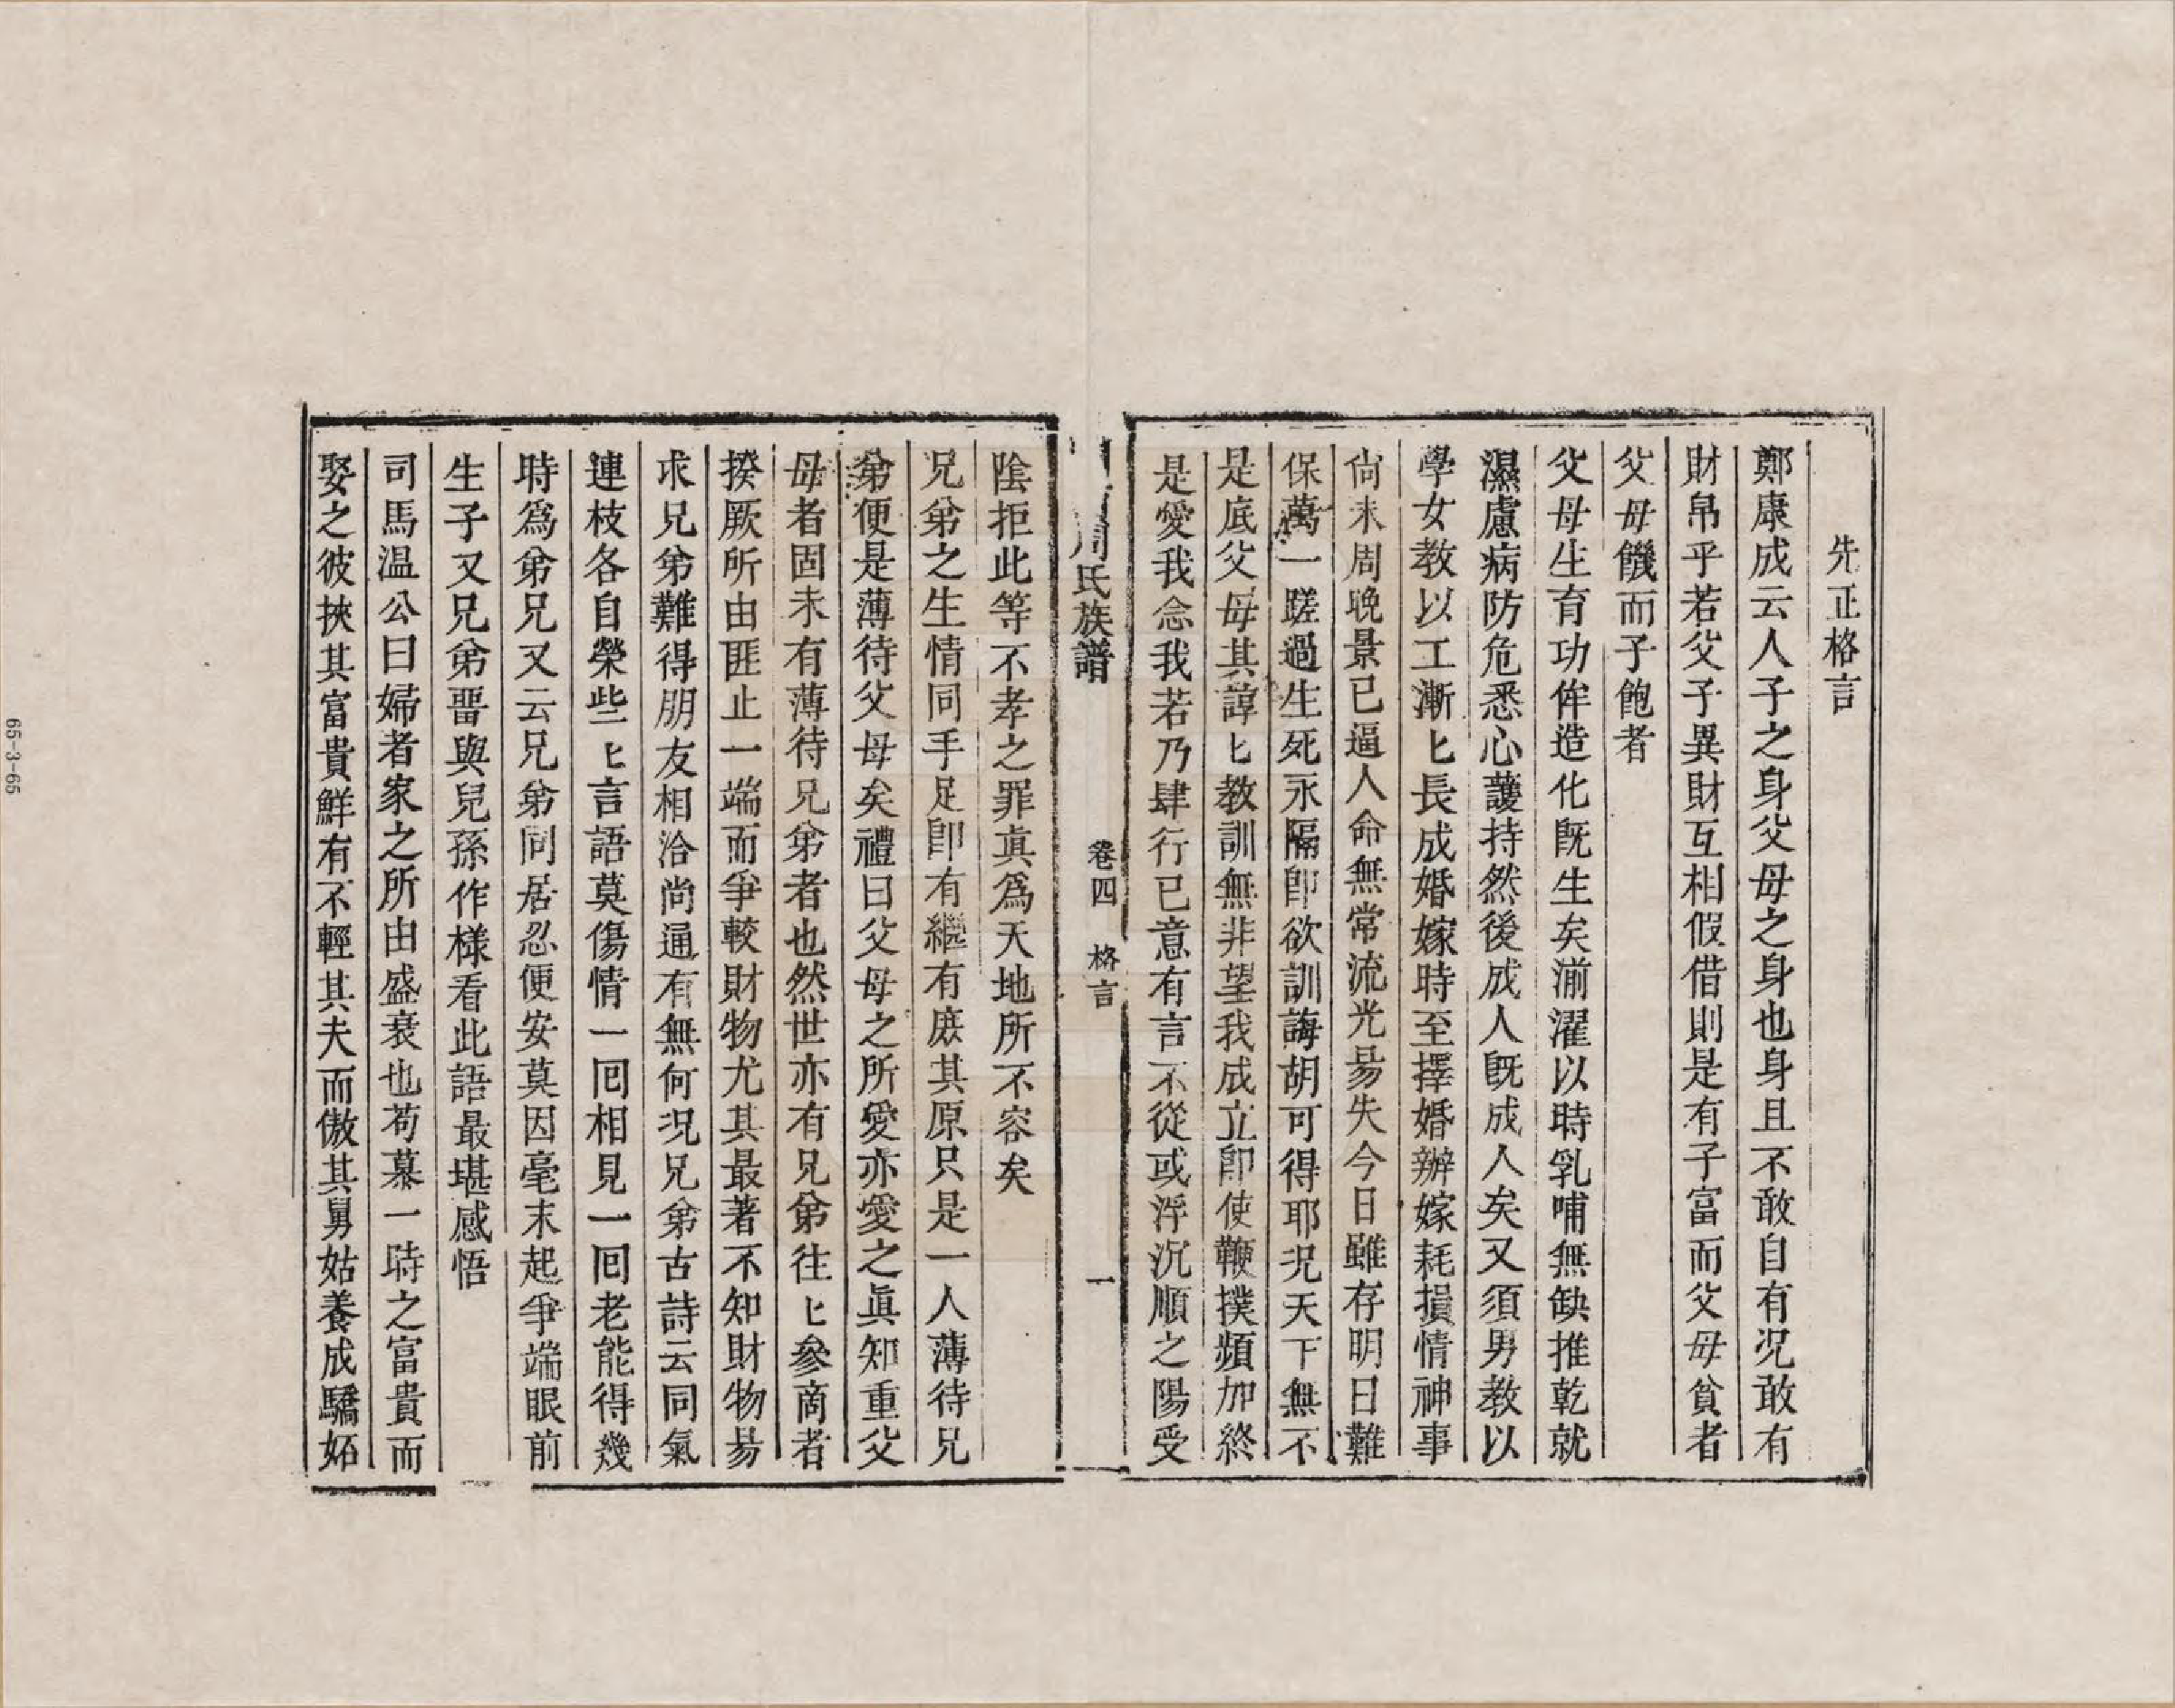 先正格言
鄭康成云人子之身父母之身也身且不敢自有况敢有
財帛乎若父子異財互相假借則是有子富而父母貧者
父母饑而子飽者
父母生育功侔造化旣生矣湔濯以時乳哺無缺推乾就
濕慮病防危悉心護持然後成人旣成人矣又須男教以
學女教以工漸〻長成婚嫁時至擇婚辦嫁耗損情神事
尙未周晚景已逼人命無常流光易失今日雖存明日難
保萬一蹉過生死永隔卽欲訓誨胡可得耶况天下無不
是底父母其諄〻教訓無非望我成立卽使鞭撲頻加終
是愛我念我若乃肆行已意有言不從或浮沉順之陽受
周氏族譜
卷四
格言
一
陰拒此等不孝之罪真爲天地所不容矣
兄弟之生情同手足卽有繼有庶其原只是一人薄待兄
弟便是薄待父母矣禮曰父母之所愛亦愛之眞知重父
母者固未有薄待兄弟者也然世亦有兄弟往〻參商者
揆厥所由匪止一端而爭較財物尤其最著不知財物易
求兄弟難得朋友相洽尚通有無何况兄弟古詩云同氣
連枝各自榮些〻言語莫傷情一回相見一回老能得幾
時爲弟兄又云兄弟同居忍便安莫因毫末起爭端眼前
生子又兄弟畱與兒孫作樣看此語最堪感悟
司馬温公曰婦者家之所由盛衰也苟慕一時之富貴而
娶之彼挾其富貴鮮有不輕其夫而傲其舅姑養成驕妬
65-3-65